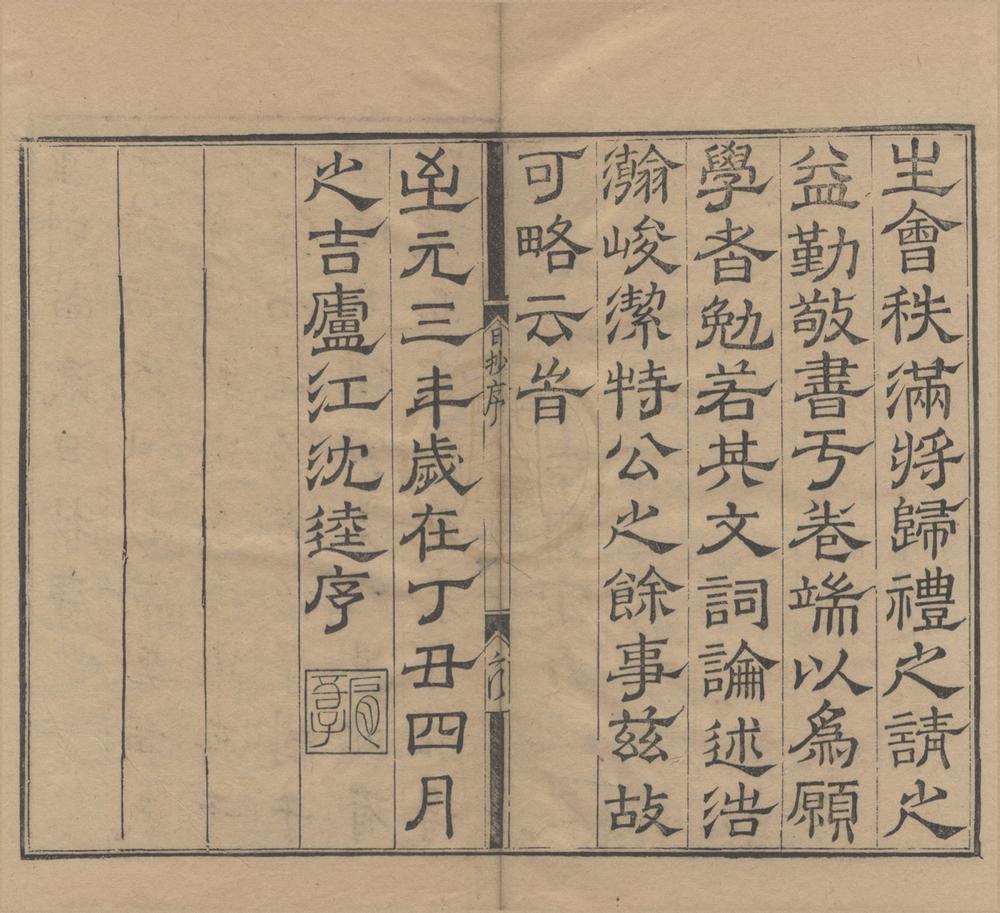 生會秩滿將歸禮之請之
益勤敬書亏卷端以爲願
學者勉若其文詞論述浩
瀚峻潔特公之餘事茲故
可略云旹
日抄序
六
至元三年歲在丁丑四月
之吉廬江沈逵序